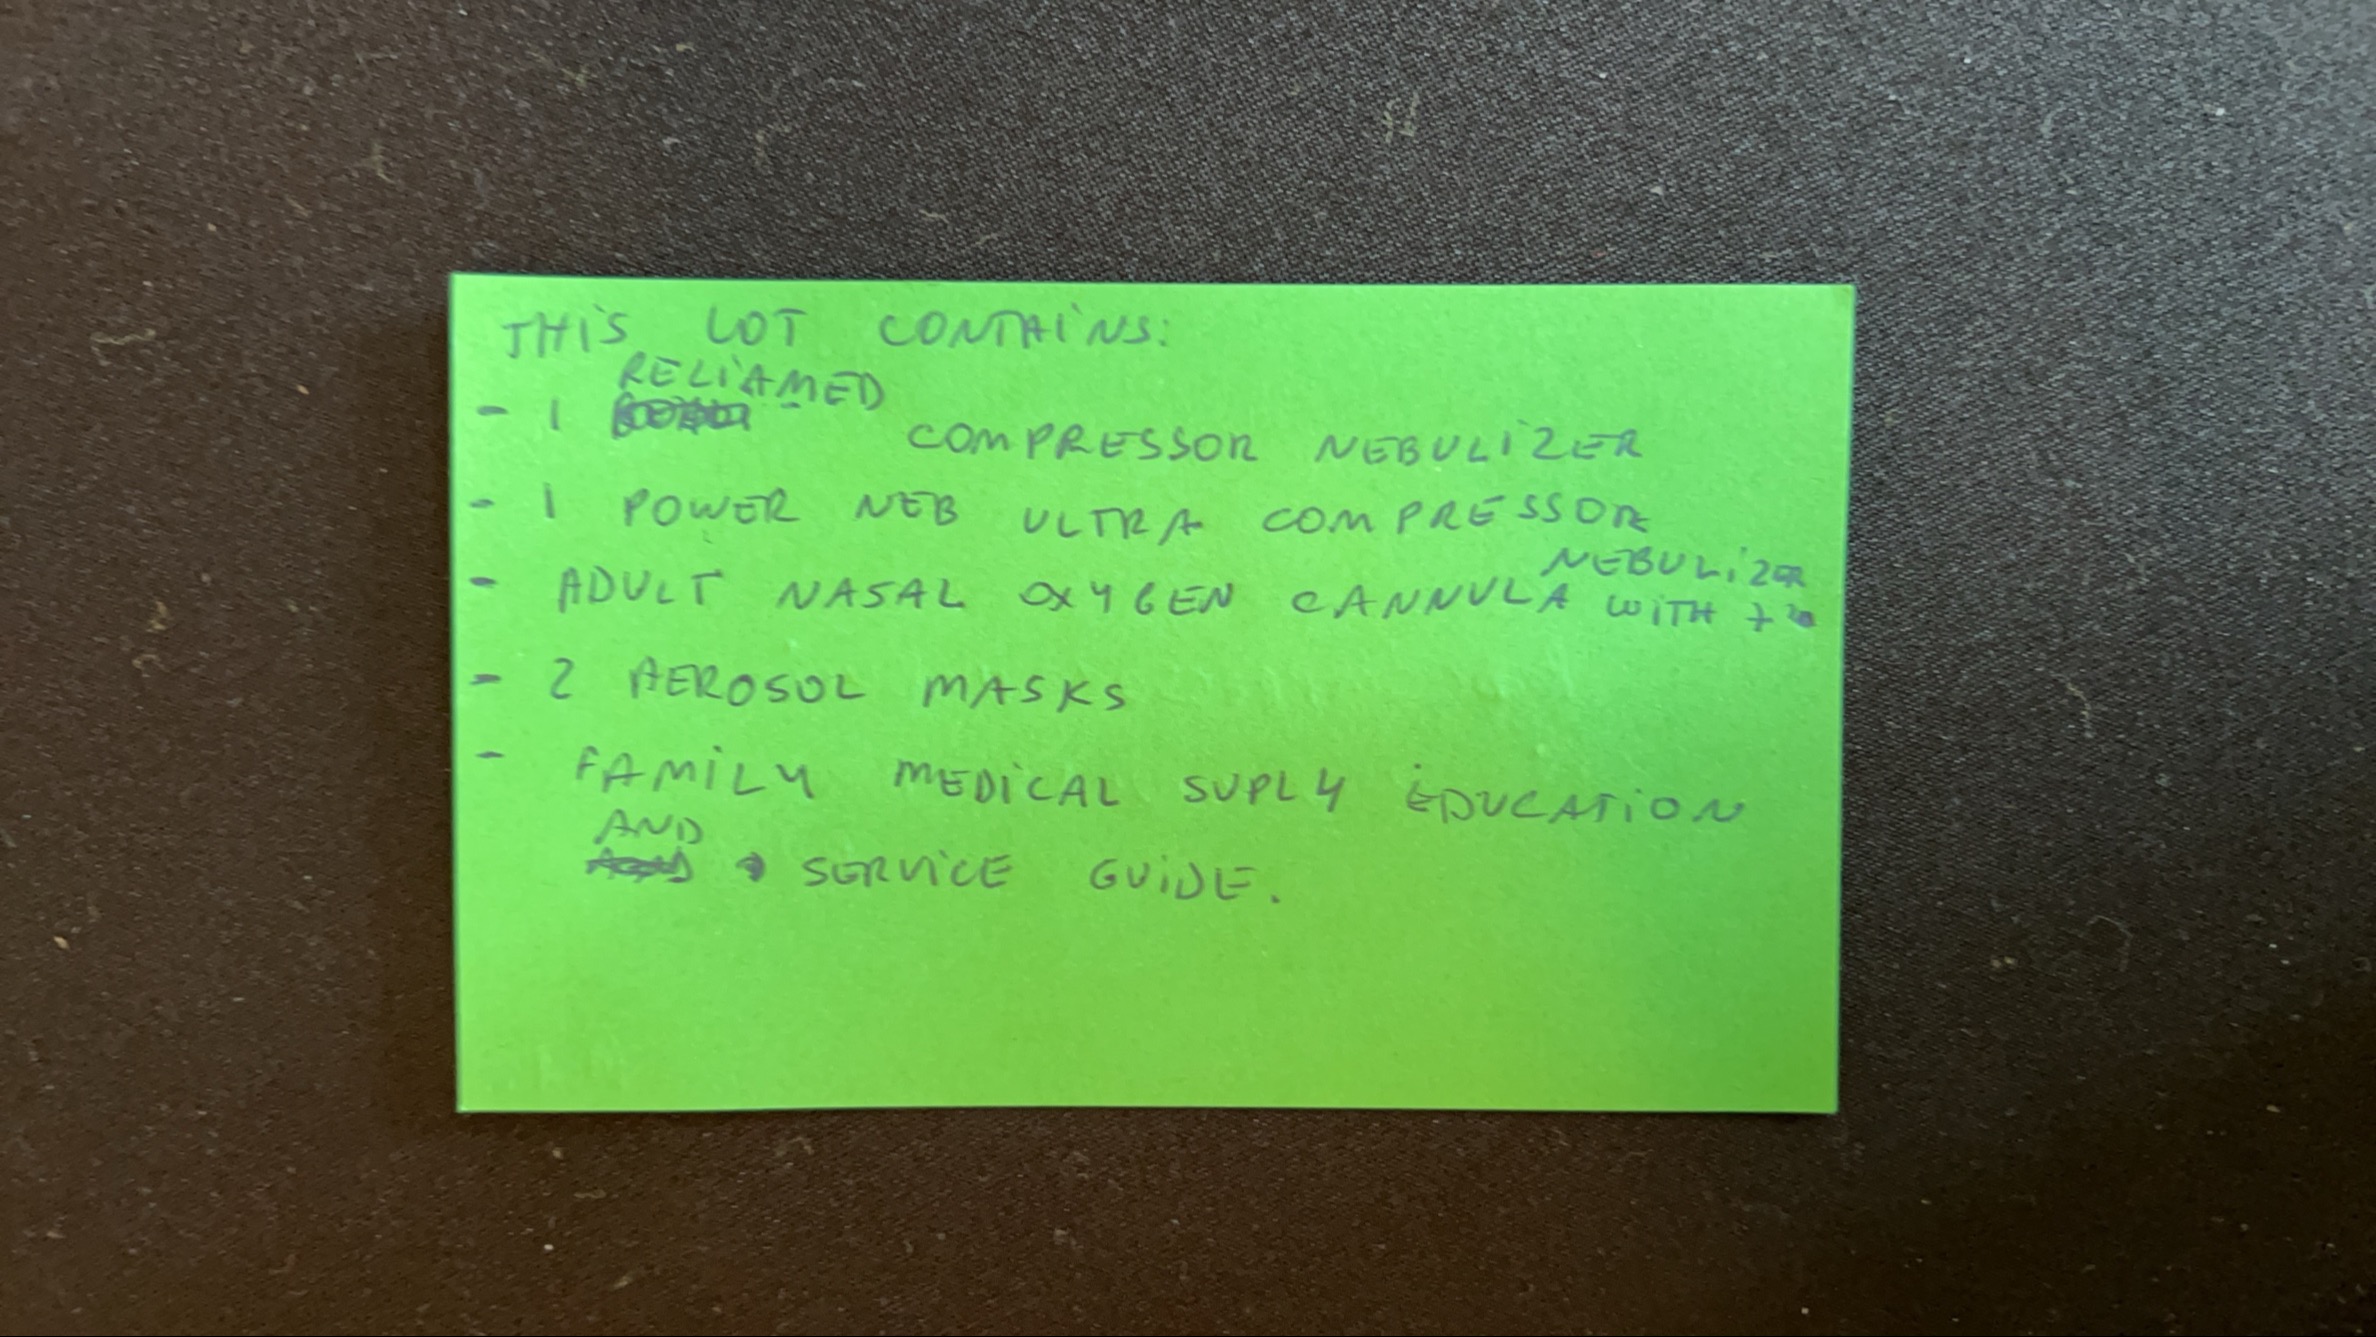 THIS LOT CONTAINS:
RELIAMED
- 1 COMPRESSOR NEBULIZER
- 1 POWER NEB ULTRA COMPRESSOR
NEBULIZER
- ADULT NASAL OXYGEN CANNULA WITH
- 2 AEROSOL MASKS
- FAMILY MEDICAL SUPLY EDUCATION
AND
SERVICE GUIDE.